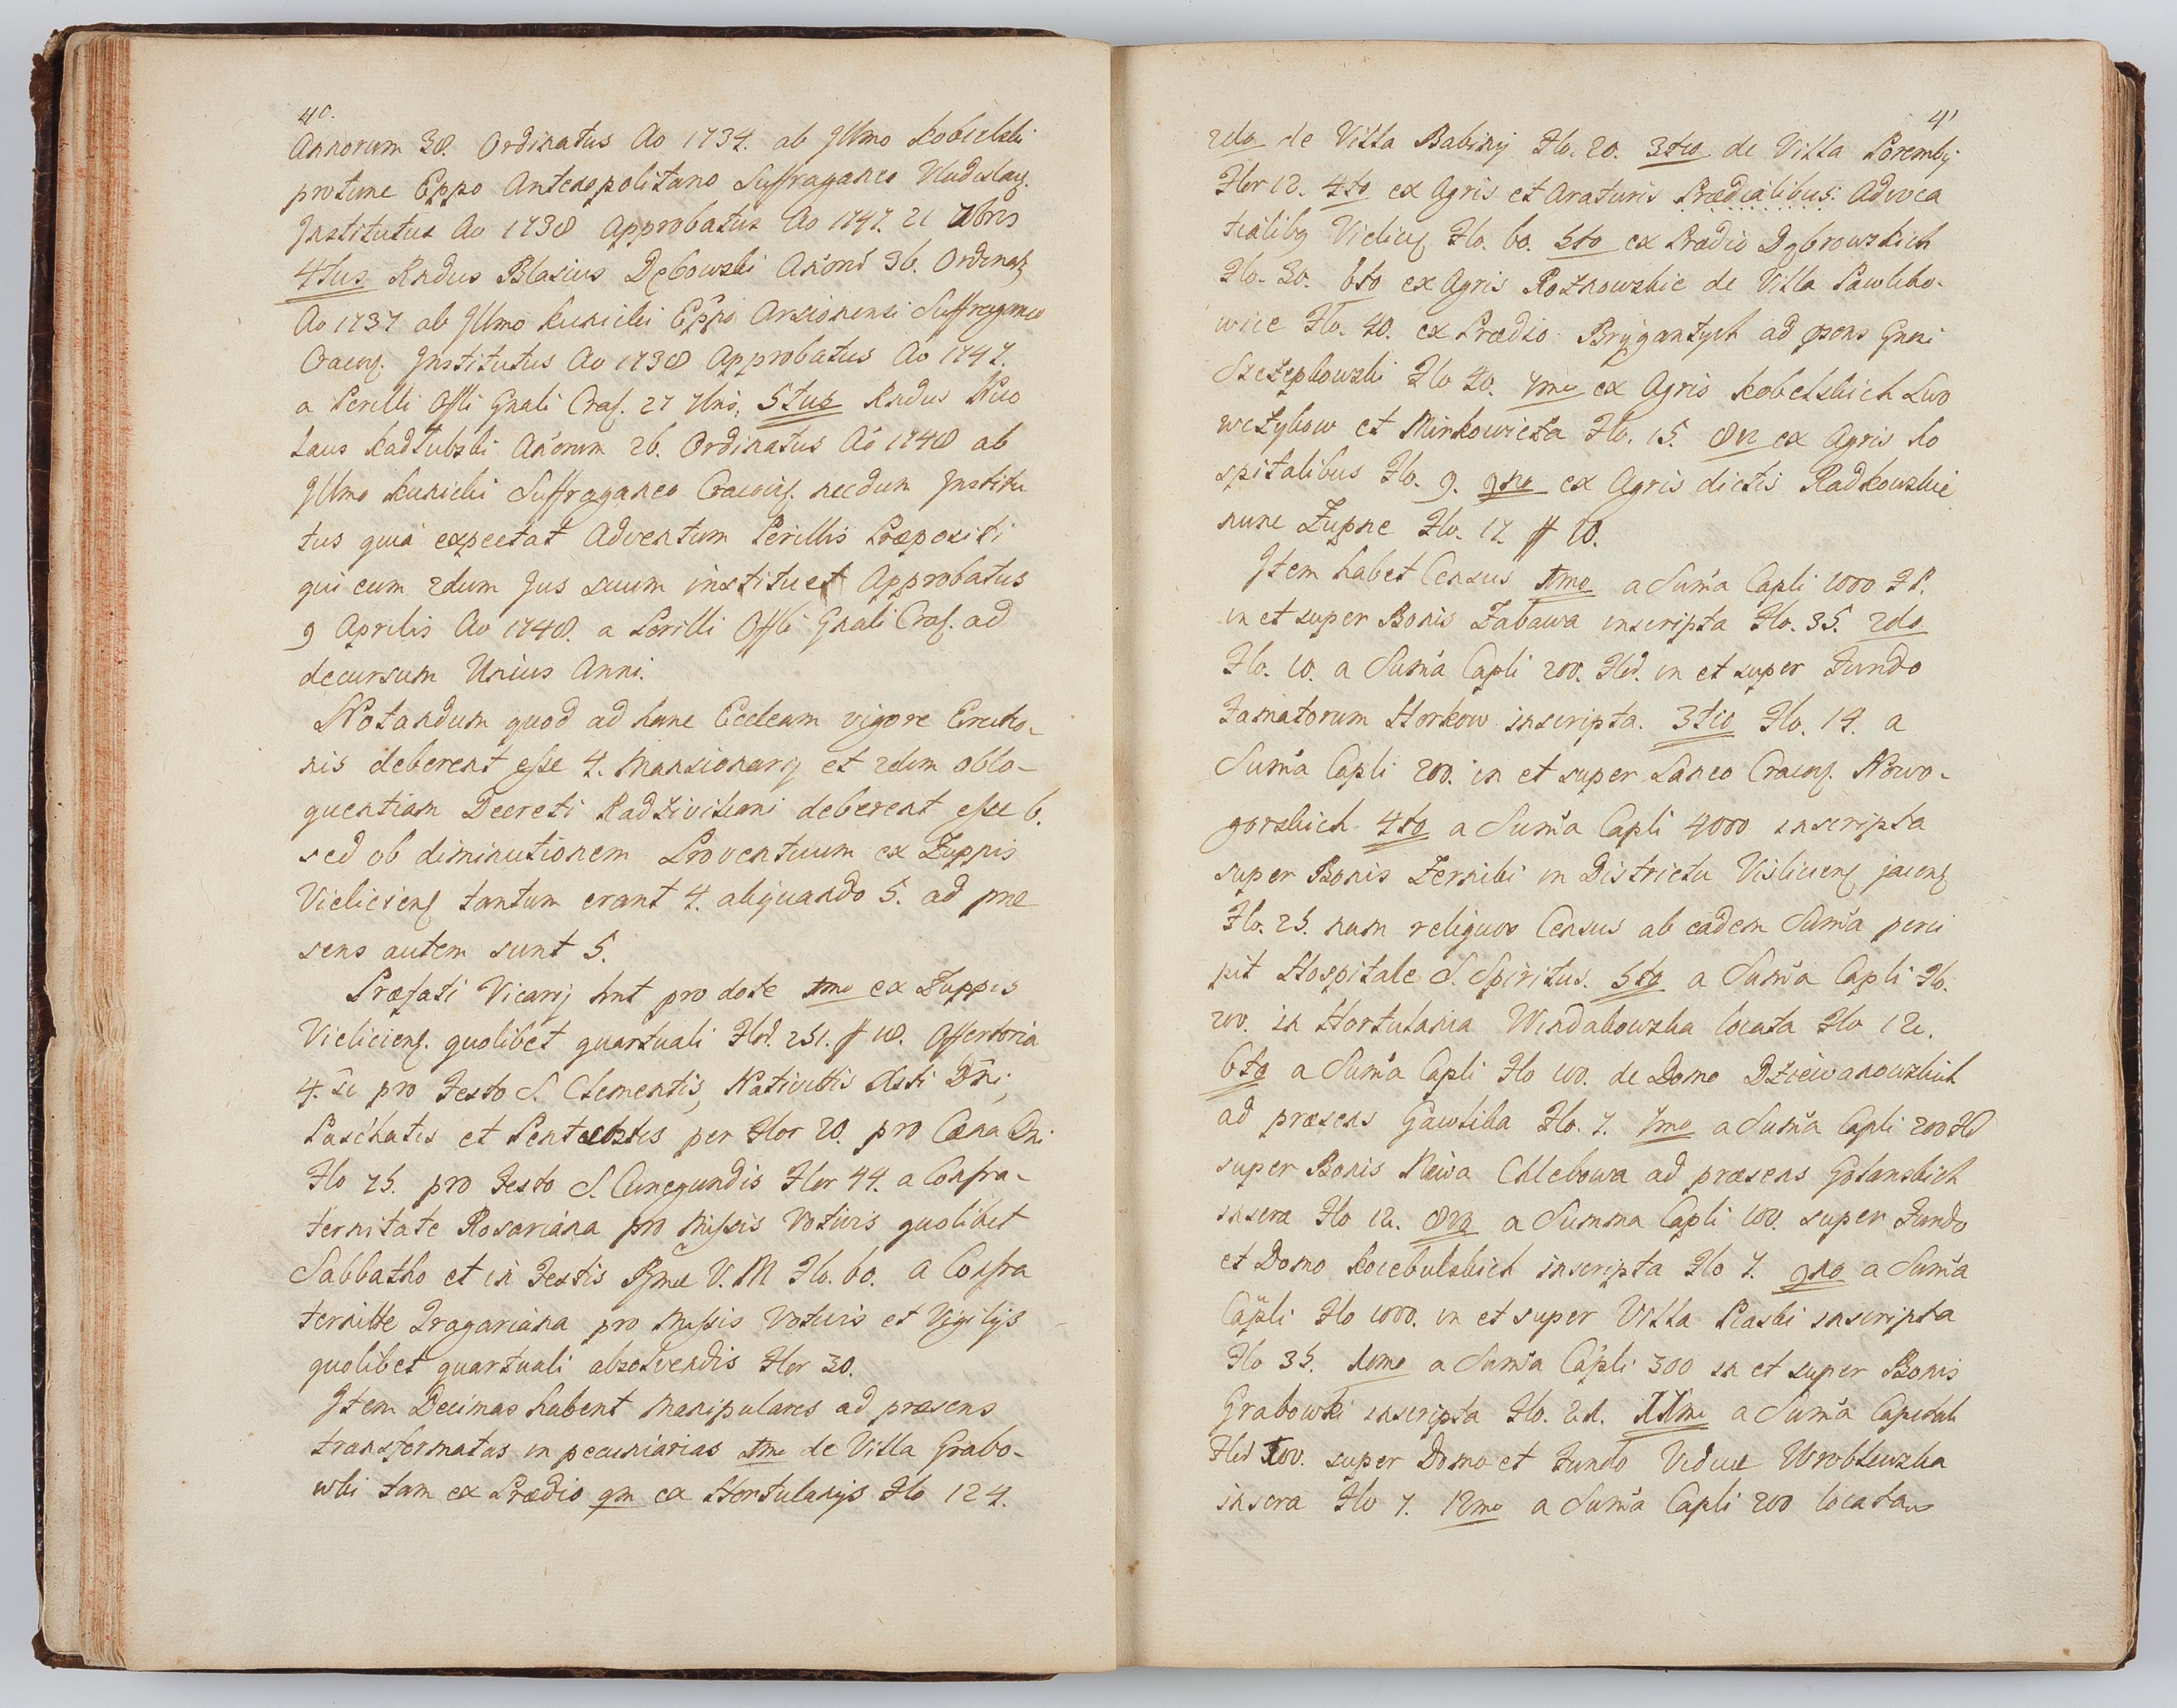 40.
Annorum 38. Ordinatus Ao 1734. ab Jllmo Kobielski
protunc Eppo Antenopolitano Suffraganeo Vladislav.
Institutus Ao 1738 Approbatus Ao 1747. 21 7bris
4tus Rndus Blasius Dębowski Anorū 36. Ordinatq
Ao 1737 ab Jllmo Kunicki Eppo Arsionensi Suffraganeo
Cracov. Institutus Ao 1738 Approbatus Ao 1747.
a Perilli Offli Gnali Crac. 27 7bris, 5tus Rndus Nico
laus Kadłubski Anorum 26. Ordinatus Ao 1748 ab
Jllmo Kunicki Suffraganeo Cracov. necdum Institu
tus quia expectat Adventum Perillis Præpositi
qui eum 2dum Jus suum instituet Approbatus
9 Aprilis Ao 1748. a Perilli Offli Gnali Crac. ad
decursum Unius Anni.
Notandum quod ad hanc Eccleam vigore Erectio-
nis deberent esse 4. Mansionarij et 2dum oblo-
quentiam Decreti Radziviliani deberent esse 6.
sed ob diminutionem Proventuum ex Zuppis
Vielicien. tantum erant 4. aliquando 5. ad præ
sens autem sunt 5.
Præfati Vicarij hnt pro dote 1mo ex Zuppis
Vielicien. quolibet quartuali Flor. 251. gr 18. Offertoria
4. sc pro Festo S. Clementis, Nativittis Xsti Dni,
Paschatis et Pentecostes per Flor 20. pro Cæna Dni
Flo 75. pro Festo S. Cunegundis Flor 44. a Confra-
ternitate Rosariana pro Missis Votivis quolibet
Sabbatho et in Festis Bmæ V. M Flo. 60. a Confra
ternitte Tragariana pro Missis Votivis et Vigilijs
quolibet quartuali absolvendis Flor 30.
Item Decimas habent Manipulares ad præsens
transformatas in pecuniarias 1mo de Villa Grabo-
wki tam ex Prædio qm ex Hortulanijs Flo 124.
41
2do de Villa Babiny Flo. 20. 3tio de Villa Poremby
Flor 12. 4to ex Agris et Araturis Prædialibus: Advoca
tialibq Vielicien Flo. 60. 5to ex Prædio Dąbrowskich
Flo. 30. 6to ex Agris Rożnowskie de Villa Pawliko-
wice Flo. 40. ex Prædio Brygantych ad præns Gnosi
Szczepkowski Flo 40. 7mo ex Agris Kobelskich Lwo
wczykow et Mirkowicza Flo. 15. 8vo ex Agris ho
spitalibus Flo. 9. 9no ex Agris dictis Radkowskie
nunc Żupne Flo. 17. gr 10.
Item habet Census 1mo a Suma Capli 1000 Fl.
in et super Bonis Zabawa inscripta Flo. 35. 2do
Flo. 10. a Suma Capli 200. Flor. in et super Fundo
Famatorum Horkow inscripta. 3tio Flo. 14. a
Suma Capli 200. in et super Laneo Cracov. Nowo-
gorskich 4to a Suma Capli 4000 inscripta
super Bonis Zerniki in Districtu Vislicien jacen
Flo. 25. nam reliquos Census ab eadem Suma perci
pit Hospitale S. Spiritus. 5to a Suma Capli Flo.
200. in Hortulania Windakowska locata Flo 12.
6to a Suma Capli Flo 100. de Domo Dziewanowskich
ad præsens Gawlika Flo. 7. 7mo a Suma Capli 200 Flo
super Bonis Niwa Chlebowa ad præsens Golanskich
inscra Flo 12. 8vo a Summa Capli 100. super Fundo
et Domo Kocebulskich inscripta Flo 7. 9no a Suma
Capli Flo 1000. in et super Villa Piaski inscripta
Flo 35. 10mo a Suma Capli 300 in et super Bonis
Grabowki inscripta Flo. 21. 11mo a Suma Capitali
Flor 100. super Domo et Fundo Viduæ Wroblewska
inscra Flo 7. 12mo a Suma Capli 200 locata